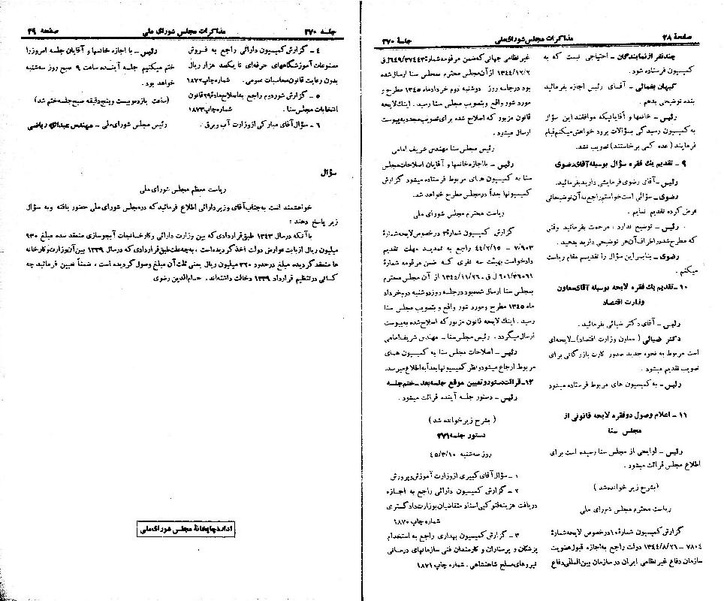 صفحهٔ ۲۸
مذاکرات مجلس شورای ملی
جلسه ۲۷۰
چند نفر از نمایندگان - احتیاجی نیست که به
کمیسیون فرستاده شود.
کیهان یغمائی - آقای رئیس اجازه بفرمائید
بنده توضیحی بدهم.
رئیس - خانمها و آقایانیکه موافقند این سؤال
به کمیسیون رسیدگی بسؤالات برود خواهش میکنم قیام
فرمایند (عده کمی برخاستند) تصویب نشد.
۹ - تقدیم یک فقره سؤال بوسیله آقای رضوی
رئیس - آقای رضوی فرمایشی دارید بفرمائید.
رضوی - سؤالی است خواستم راجع به آن توضیحاتی
عرض کرده تقدیم نمایم.
رئیس - توضیح ندارد. مرحمت بفرمائید وقتی
که مطرح شد در اطراف آن هر توضیحی دارید بدهید.
رضوی - بنابراین سؤال را تقدیم مقام ریاست
میکنم.
۱۰ - تقدیم یک فقره لایحه بوسیله آقای معاون
وزارت اقتصاد
رئیس - آقای دکتر ضیائی بفرمائید.
دکتر ضیائی (معاون وزارت اقتصاد) - لایحه‌ای
است مربوط به نحوه تجدید صدور کارت بازرگانی برای
تصویب تقدیم میشود.
رئیس - به کمیسیون های مربوط فرستاده میشود
۱۱ - اعلام وصول دو فقره لایحه قانونی از
مجلس سنا
رئیس - لوایحی از مجلس سنا رسیده است برای
اطلاع مجلس قرائت میشود.
(بشرح زیر خوانده شد)
ریاست محترم مجلس شورای ملی
گزارش کمیسیون شمارهٔ ۱ در خصوص لایحه شمارهٔ
۷۸۰۴ - ۱۳۴۴/۸/۲۱ دولت راجع به اجازه قبول عضویت
سازمان دفاع غیر نظامی ایران در سازمان بین‌المللی دفاع
غیر نظامی جهانی که ضمن مرقومه شمارهٔ
۱۳۴۴/۱۲/۲ از آن مجلس محترم به مجلس سنا ارسال شده
بود در جلسه روز دوشنبه دوم خرداد ماه ۱۳۴۵ مطرح و
مورد شور واقع و بتصویب مجلس سنا رسید. اینک لایحه
قانون مزبور که اصلاح شده برای تصویب مجدد به پیوست
ارسال میشود.
رئیس مجلس سنا مهندس شریف امامی
رئیس - با اجازه خانمها و آقایان اصلاحات مجلس
سنا به کمیسیون های مربوط فرستاده میشود گزارش
کمیسیونها بعداً در مجلس مطرح خواهد شد.
ریاست محترم مجلس شورای ملی
گزارش کمیسیون شمارهٔ ۳ در خصوص لایحه شمارهٔ
۷۰۹۰۳ - ۴۴/۷/۱۵ راجع به تمدید مهلت تقدیم
دادخواست بهیئت سه نفری که ضمن مرقومه شمارهٔ
۱۳۴۴/۱۱/۲۶ از آن مجلس محترم
بمجلس سنا ارسال شده بود در جلسه روز دوشنبه دوم خرداد
ماه ۱۳۴۵ مطرح و مورد شور واقع و بتصویب مجلس سنا
رسید. اینک لایحه قانون مزبور که اصلاح شده به پیوست
ارسال میگردد. رئیس مجلس سنا - مهندس شریف امامی
رئیس - اصلاحات مجلس سنا به کمیسیون های
مربوط ارجاع میشود و نظر کمیسیونها بعداً به اطلاع میرسد.
۱۲ - قرائت دستور و تعیین موقع جلسه بعد - ختم جلسه
رئیس - دستور جلسه آینده قرائت میشود.
(بشرح زیر خوانده شد)
دستور جلسه ۲۷۱
روز سه‌شنبه ۴۵/۳/۱۰
۱ - سؤال آقای کبیری از وزارت آموزش و پرورش
۲ - گزارش کمیسیون دارائی راجع به اجازه
دریافت هزینه فتوکپی اسناد متقاضیان بوزارت دادگستری
شماره چاپ ۱۸۷۰
۳ - گزارش کمیسیون بهداری راجع به استخدام
پزشکان و پرستاران و کارمندان فنی سازمانهای درمانی
نیروهای مسلح شاهنشاهی. شماره چاپ ۱۸۷۱
جلسه ۲۷۰
مذاکرات مجلس شورای ملی
صفحه ۲۹
۴ - گزارش کمیسیون دارائی راجع به فروش
مصنوعات آموزشگاههای حرفه‌ای تا یکصد هزار ریال
بدون رعایت قانون محاسبات عمومی. شماره چاپ ۱۸۷۲
۵ - گزارش شور دوم راجع به اصلاح ماده ۲۹ قانون
انتخابات مجلس سنا. شماره چاپ ۱۸۷۳
۶ - سؤال آقای مبارکی از وزارت آب و برق.
رئیس - با اجازه خانمها و آقایان جلسه امروز را
ختم میکنیم جلسه آینده ساعت ۹ صبح روز سه‌شنبه
خواهد بود.
(ساعت یازده و بیست و پنج دقیقه صبح جلسه ختم شد)
رئیس مجلس شورای ملی - مهندس عبدالله ریاضی
سؤال
ریاست معظم مجلس شورای ملی
خواهشمند است به جناب آقای وزیر دارائی اطلاع فرمائید که در مجلس شورای ملی حضور یافته و به سؤال
زیر پاسخ دهند:
با آنکه در سال ۱۳۴۳ طبق قراردادی که بین وزارت دارائی و کارخانجات آبجوسازی منعقد شده مبلغ ۹۳۰
میلیون ریال از بابت عوارض دولت اخذ گردیده است. به چه علت طبق قراردادی که در سال ۱۳۳۹ بین آن وزارت و کارخانه
ها منعقد گردیده مبلغ در حدود ۳۶۰ میلیون ریال یعنی ثلث آن مبلغ وصول گردیده است، ضمناً تعیین فرمائید چه
کسانی در تنظیم قرارداد ۱۳۳۹ دخالت داشته‌اند. رضوی
اداره چاپخانهٔ مجلس شورای ملی